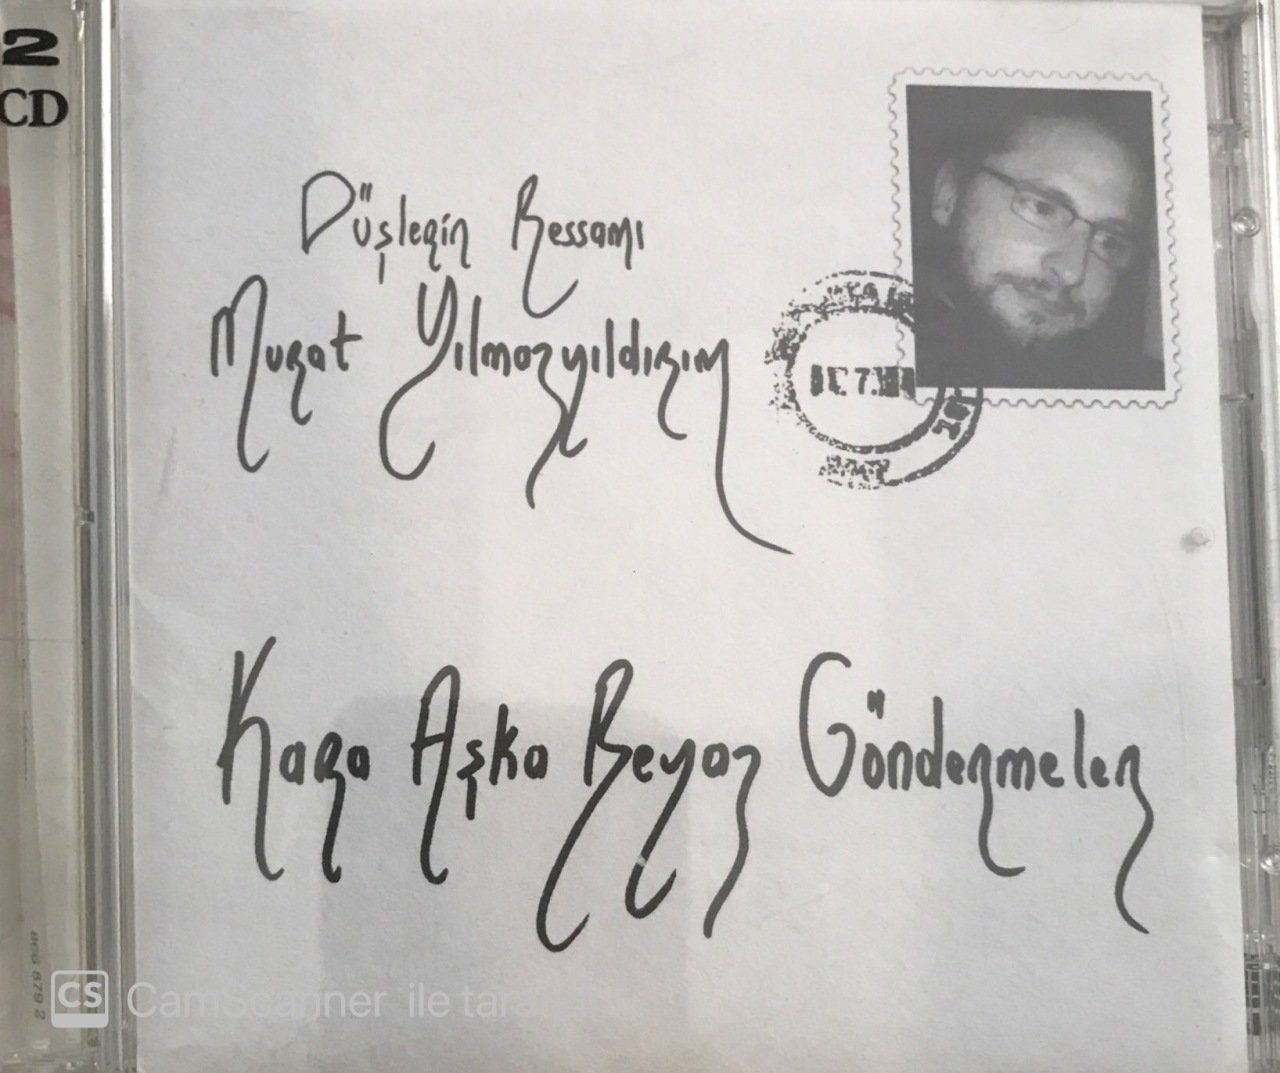 2
CD
Düşlerin Ressamı
Murat Yılmazyıldırım
Kara Aşka Beyaz Göndermeler
CS CamScanner ile